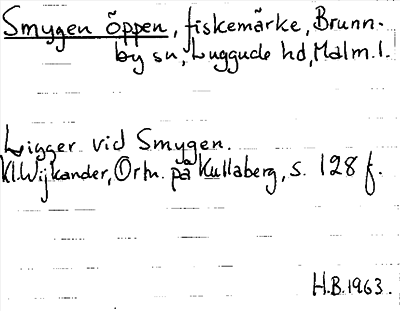 Smygen öppen, fiskemärke, Brunn-
by sn, Luggude hd, Malm.l.
Ligger vid Smygen.
Kl.Wijkander, Ortn. på Kullaberg, s. 128 f.
H.B.1963.